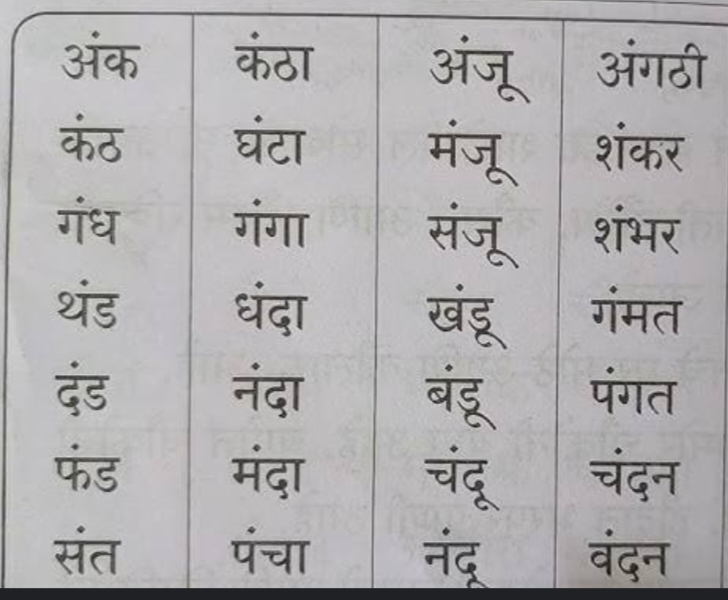 अंक कंठा अंजू अंगठी
कंठ घंटा मंजू शंकर
गंध गंगा संजू शंभर
थंड धंदा खंडू गंमत
दंड नंदा बंडू पंगत
फंड मंदा चंदू चंदन
संत पंचा नंदू वंदन